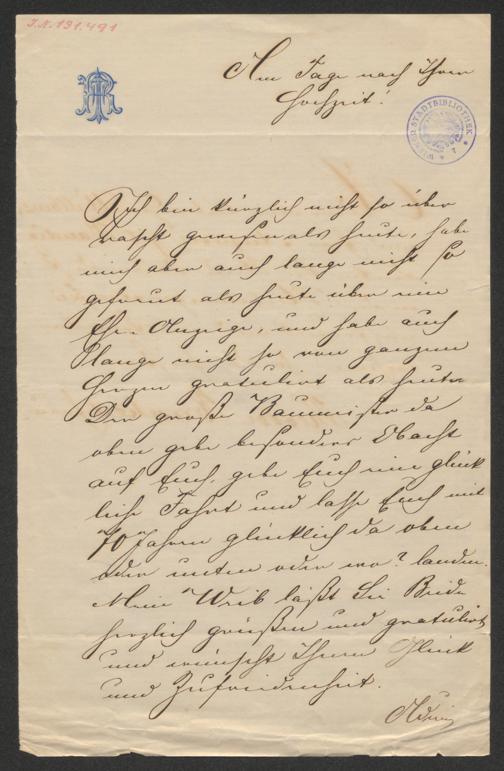 I.N. 191.491
Am Tage nach Ihrer
Hochzeit!
WIENER STADTBIBLIOTHEK
Ich bin kürzlich nicht so über
rascht gewesen als heute, habe
mich aber auch lange nicht so
gefreut als heute über eine
Ehe-Anzeige, und habe auch
lange nicht so von ganzem
Herzen gratulirt als heute
Der große Baumeister da
oben gebe besonders Obacht
auf Euch, gebe Euch eine glück
liche Fahrt und lasse Euch mit
70 Jahren glücklich da oben
oder unten oder wo? landen.
Mein Weib läßt Sie Beide
herzlich grüßen und gratulirt
und wünscht Ihnen Glück
und Zufriedenheit.